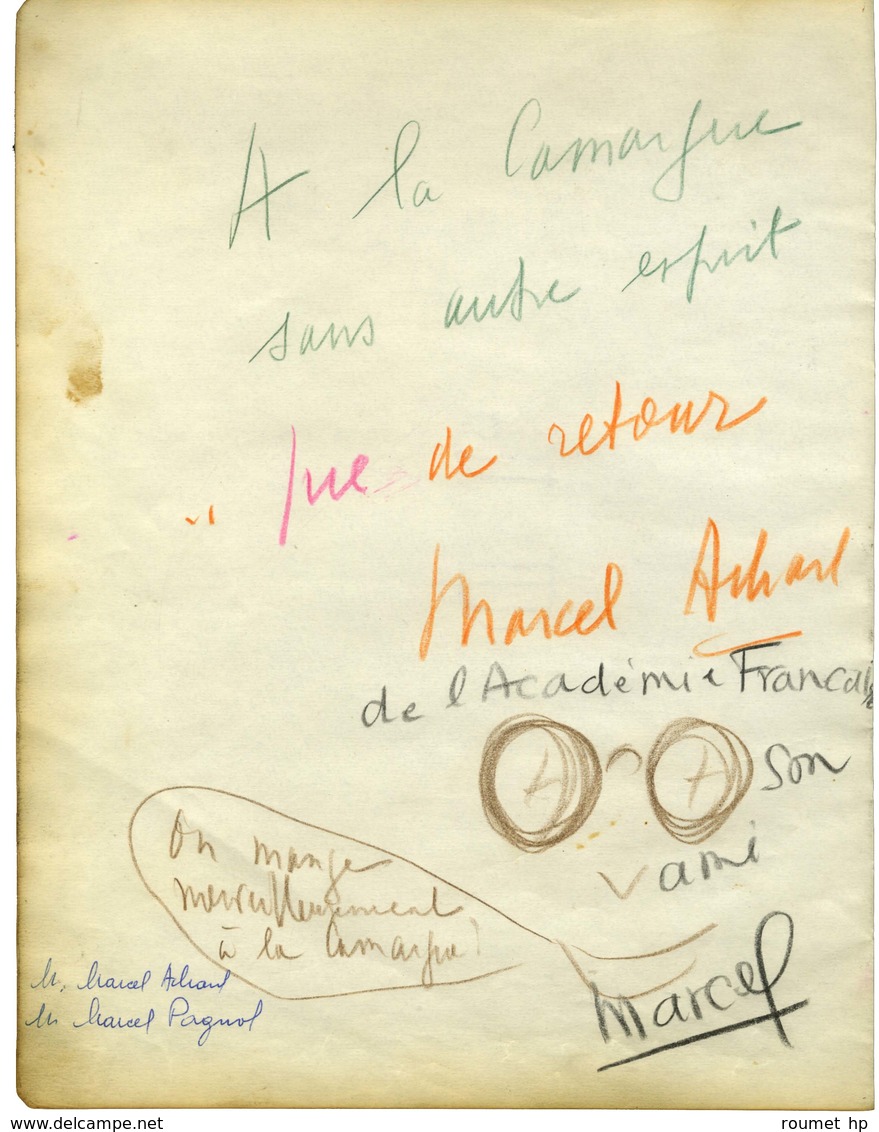 A la Camargue
sans autre esprit
que de retour
Marcel Achard
de l'Académie Francaise
A A son
ami
On mange
merveilleusement
à la Camargue!
Marcel
M. Marcel Achard
M Marcel Pagnol
www.delcampe.net
roumet hp